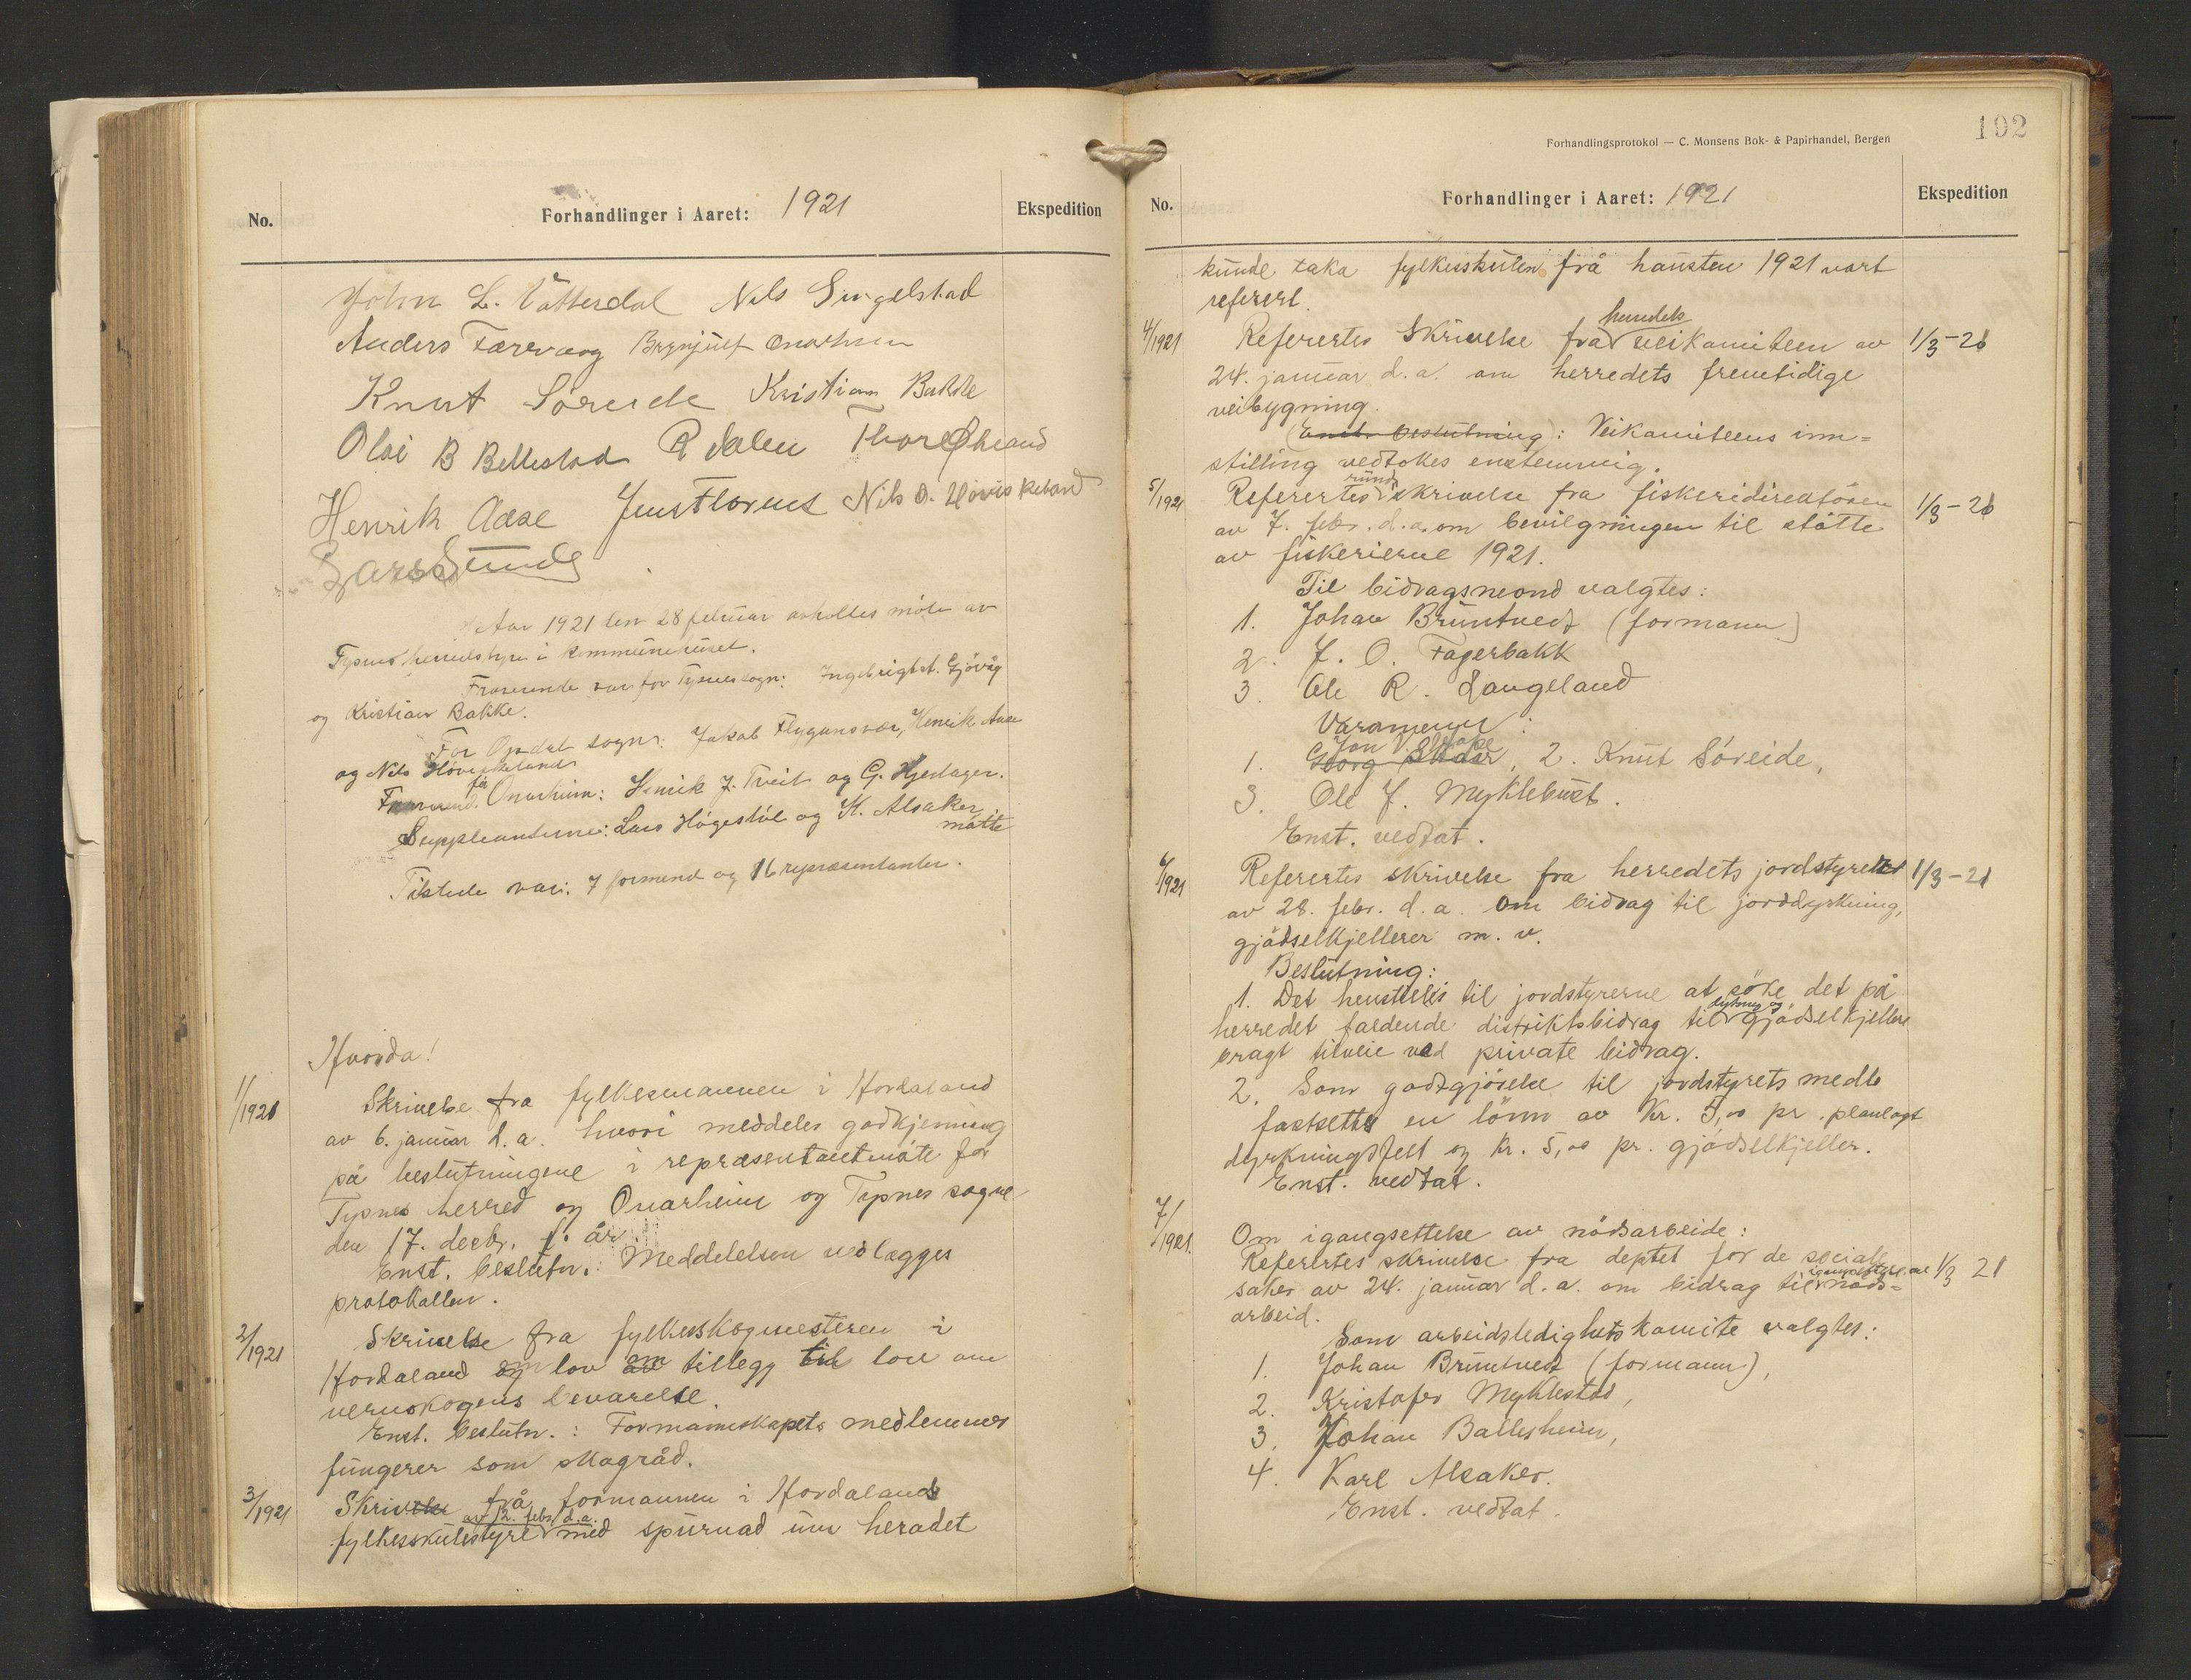 No.
Forhandlinger i Aaret: 1921
Ekspedition
John L. Vatterdal Nils Singelstad
Anders Færevaag Brynjulf Onarheim
Knut Søreide Kristian Bakke
Olai B Bellestad R Dalen Thore Øhland
Henrik Aase Jens Flornes Nils O. Høviskeland
Lars Sunde
Aar 1921 den 28 februar avholtes møte av
Tysnes herredstyre i kommunehuset.
Fraværende var for Tysnes sogn: Ingebrigt t. Gjøvåg
og Kristian Bakke.
For Opdal sogn: Jakob Flygansvær, Henrik Aase
og Nils Høviskeland
for
Onarheim: Henrik J. Tveit og G. Hjertager.
Suppleanterne: Lars Høgestøl og K. Alsaker
møtte
Tilstede var: 7 formend og 16 repræsentanter.
Hvorda!
1/1921
Skrivelse fra fylkesmannen i Hordaland
av 6. januar d.a. hvori meddeles godkjenning
på beslutningene i representantmøte for
Tysnes herred og Onarheim og Tysnes sogne
den 17. decbr. f. år
Enst. beslutn.: Meddelelsen vedlægges
protokollen.
2/1921
Skrivelse fra fylkesskogmesteren i
Hordaland om lov om tillegg til lov om
vernskogens bevarelse.
Enst. beslutn.: Formannskapets medlemmer
fungerer som skogråd.
3/1921
Skrivelse frå formannen i Hordaland
av 12. febr. d.a.
fylkesskulestyre med spurnad um heradet
Forhandlingsprotokol — C. Monsens Bok- & Papirhandel, Bergen
192
No.
Forhandlinger i Aaret: 1921
Ekspedition
kunde taka fylkesskulen frå hausten 1921 vart
referert.
herredets
4/1921 Referertes Skrivelse fra veikomiteen av 1/3-21
24. januar d.a. om herredets fremtidige
veibygning.
(Enst. beslutning): Veikomiteens inn=
stilling vedtokes enstemmig.
rund
5/1921 Referertes skrivelse fra fiskeridirektøren 1/3-21
av 7. febr. d.a. om bevilgningen til støtte
av fiskerierne 1921.
Til bidragsnemnd valgtes:
1. Johan Bruntvedt (formann)
2. J. O. Fagerbakk
3 Ole R. Laugeland
Varamenn:
Jon V. Drape
1. Georg Skaar, 2. Knut Søreide,
3. Ole J. Myklebust.
Enst. vedtat.
6/1921 Referertes skrivelse fra herredets jordstyre 1/3-21
av 28. febr. d.a. om bidrag til jorddyrkning,
gjødselkjellerer m. v.
Beslutning:
1. Det henstilles til jordstyrerne at søke det på
dyrkning og
herredet faldende distriktsbidrag til gjødselkjellere
bragt tilveie ved private bidrag.
2. Som godtgjørelse til jordstyrets medl.
fastsettes en lønn av Kr. 5,00 pr. planlagt
dyrkningsfelt og kr. 5,00 pr. gjødselkjeller.
Enst. vedtat.
7/1921. Om igangsettelse av nødsarbeide:
Referertes skrivelse fra deptet for de sociale 1/3 21
igangsettelse av
saker av 24. januar d.a. om bidrag til nøds=
arbeid.
Som arbeidsledighetskomite valgtes:
1. Johan Bruntvedt (formann),
2. Kristofer Myklestad,
3. Johan Ballesheim,
4. Karl Alsaker.
Enst. vedtat.